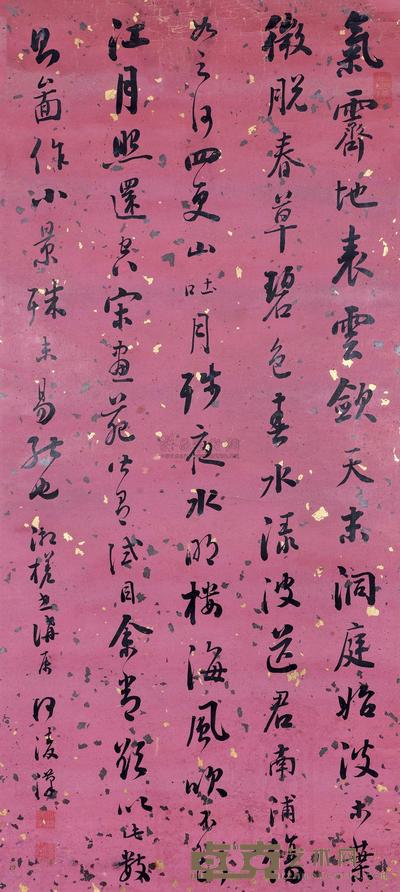 氣霽地表雲斂天末洞庭始波木葉
微脱春草碧色春水漾波送君南浦傷
如之何四更山吐月殘夜水明樓海風吹不斷
江月照還空宋畫苑皆有試目余嘗欲以此數
則圖作小景殊未易能也
湘槎世講屬 何凌漢